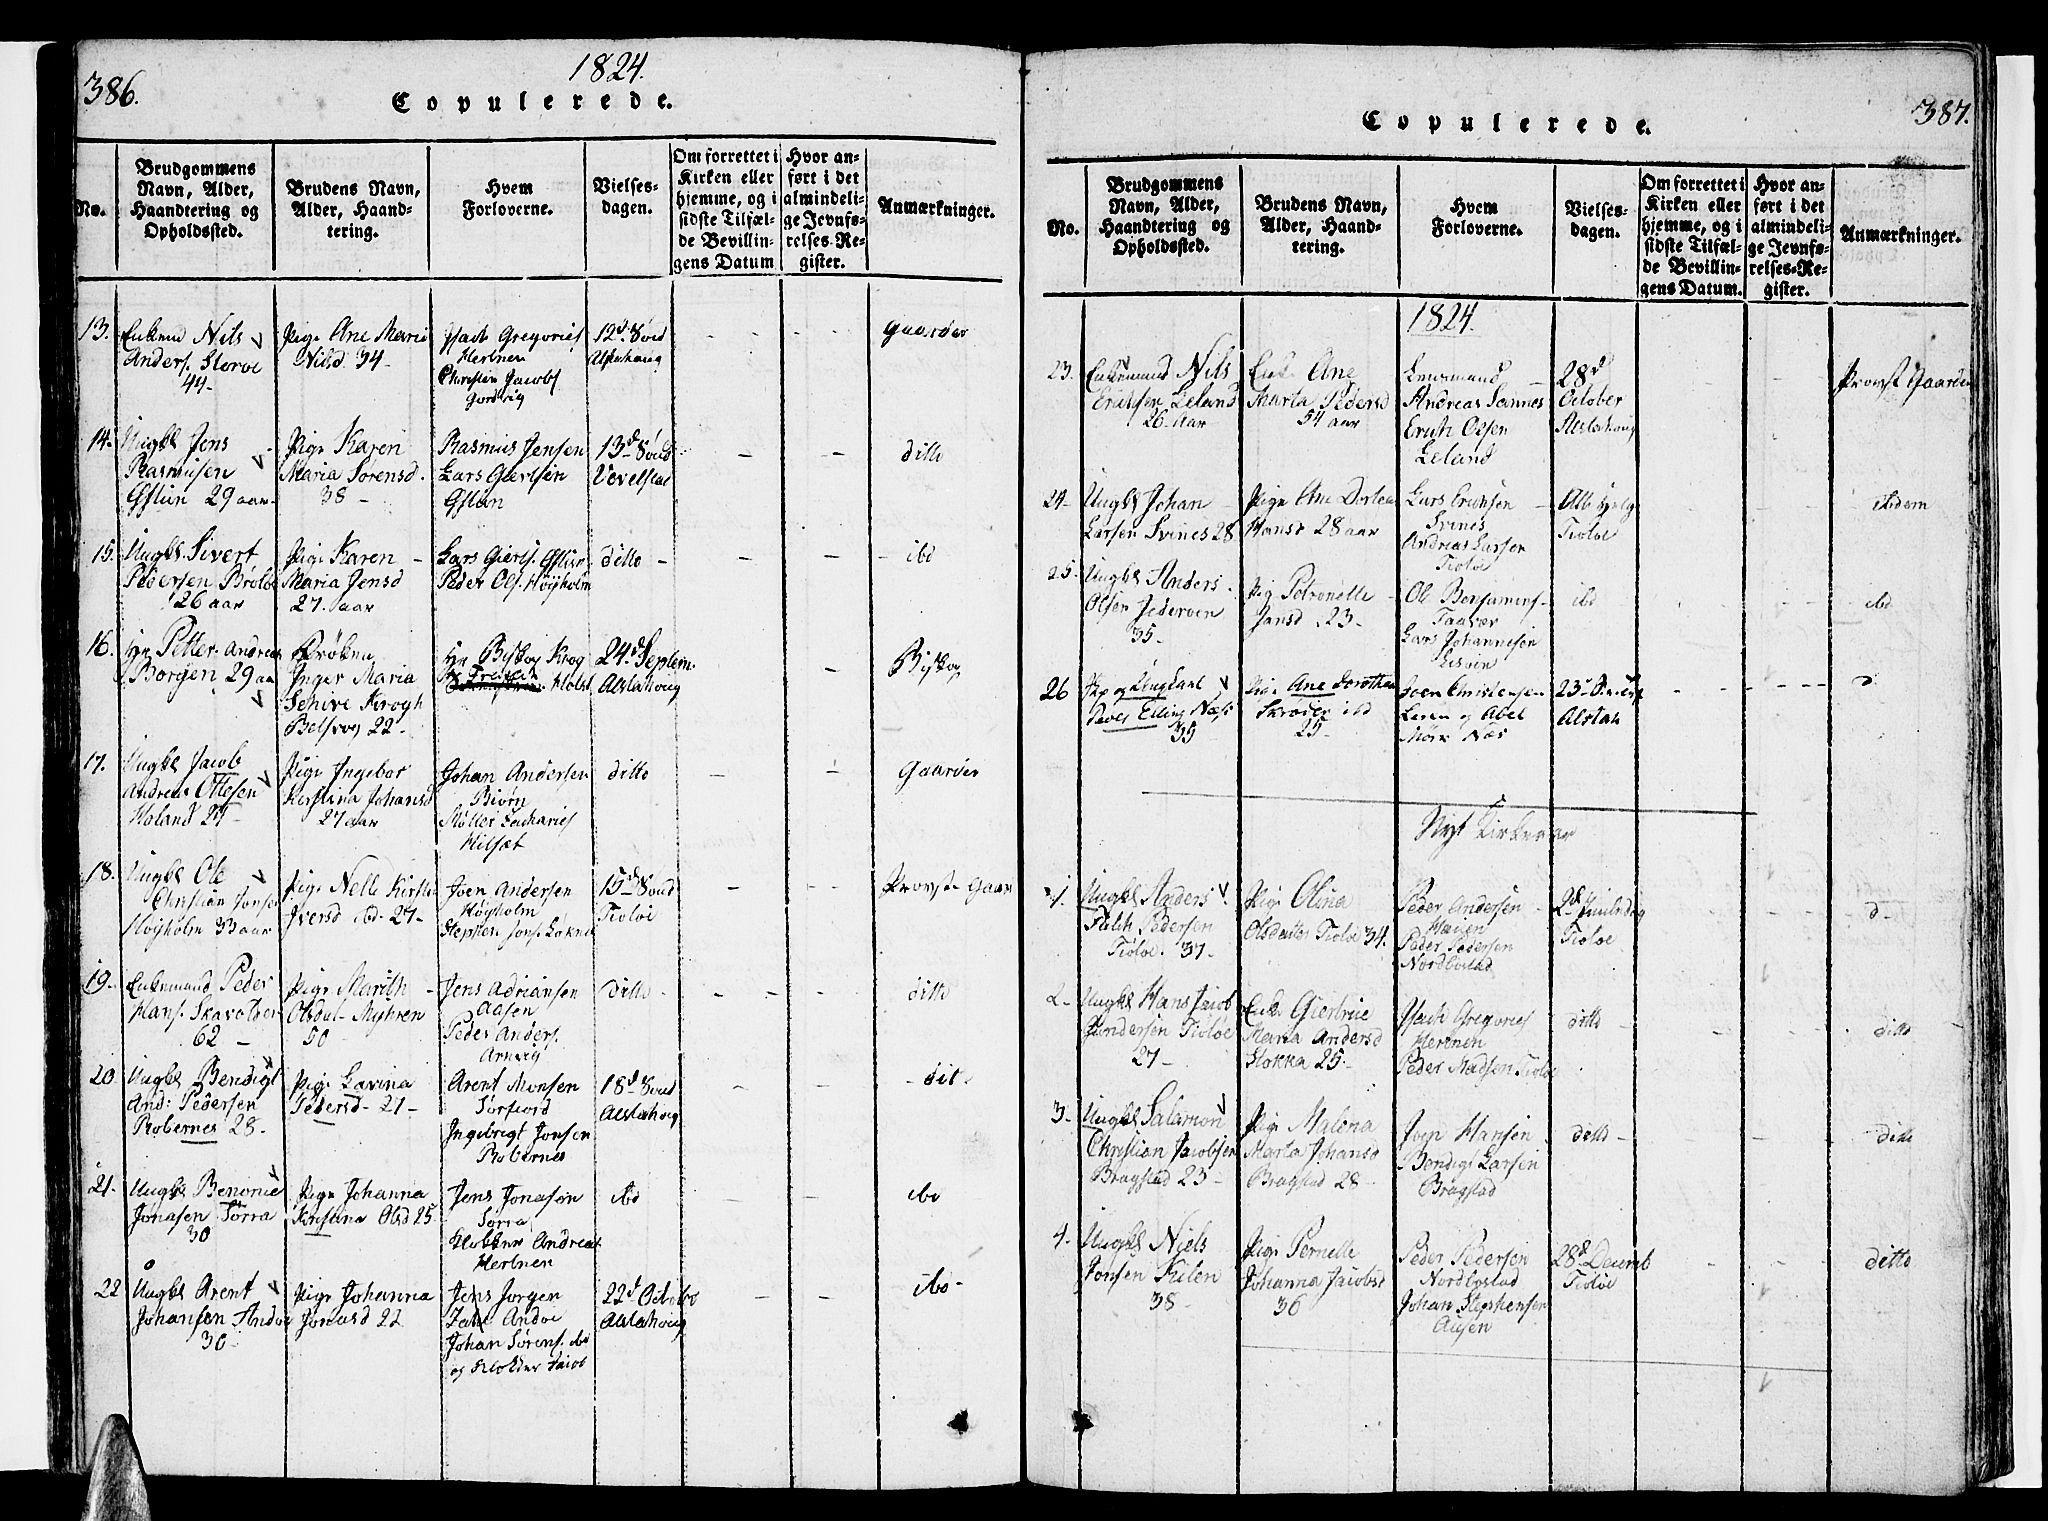 386.
1824.
Copulerede.
No.
Brudgommens
Navn, Alder,
Haandtering og
Opholdssted.
Brudens Navn,
Alder, Haand-
tering.
Hvem
Forloverne.
Vielses-
dagen.
Om forrettet i
Kirken eller
hjemme, og i
sidste Tilfæl-
de Bevillin-
gens Datum
Hvor an-
ført i det
almindeli-
ge Jevnfø-
relses-Re-
gister.
Anmærkninger.
13.
Enkemd Nils
Anders. Storve
44-
Pige Ane Mari
Nilsd 34-
Isach Gregories
Herbnen
Christen Jacobs
12d
gaarder
14.
Ungkl Jens
Rasmusen
29 aar
Pige Karen
Maria Sørensd.
38-
Rasmus Jensen
Lars Giertsen
13d
Vevelstad
ditto
15.
Ungkl. Sivert
Pedersen Brøløs
26 aar
Pige Karen
Maria Jensd
27. aar
Lars Gierts.
Peder Ols. Høyholm
ditto
ibd
16.
Hr Petter Andreas
Borgen 29 aar
Frøken
Inger Maria
Schive Krogh
22-
Hr Biskop Krog
Holst
24d Septem.
Alstahoug
Biskop
17.
Ungkl Jacob
Andreas Ottesen
Holand 27-
Pige Ingebor
Kirstina Johansd
27 aar
Johan Andersen
Biørn
Møller Zacharies
Hilsæt
ditto
gaarder
18.
Ungkl Ole
Christian Jonsen
Høyholm 33 aar
Pige Nelle Kirstin
Iversd ibd- 27-
Joen Andersen
Høyholm
Stephen Jons. Løkn
15d
Tioløe
Provst Gaar
19.
Enkemand Peder
Hans. Skavolden
62-
Pige Marith
Olsdat- Myhren
50
Jens Adriansen
Aasen
Peder Anders.
Arnvig
ditto
ditto
20.
Ungkl Bendigt
And: Pedersen
Robernes 28-
Pige Lavina
Pedersd- 27-
Arent Monsen
Sørfiord
Ingebrigt Jonsen
Robernes
18d
Alstahoug
dit-
21.
Ungkl Benonie
Jonasen Torra
30
Pige Johanna
Kirstina Olsd 25
Jens Jonasen
Sørra
Klokker Andreas
Herbnen
ibd
ibd
22
Ungkl Arent
Johansen Andøe
30-
Pige Johanna
Jonasd 22
Jens Jørgen
Zahl Andøe
Johan Sørens. ibd
og Klokker Jacob
22d October
Alstahoug
ibd-
387.
Copulerede.
No.
Brudgommens
Navn, Alder,
Haandtering og
Opholdssted.
Brudens Navn,
Alder, Haand-
tering.
Hvem
Forloverne.
Vielses-
dagen.
Om forrettet i
Kirken eller
hjemme, og i
sidste Tilfæl-
de Bevillin-
gens Datum.
Hvor an-
ført i det
almindeli-
ge Jevnfø-
relses-Re-
gister.
Anmærkninger.
1824.
23.
Enkemand Nils
Erichsen Leland
26. Aar
Enke Ane
Marta Pedersd
54 aar
Lensmand
Andreas Sannes
Erich Olsen
Leland
28d
October
Alstahoug
Provst Gaarder
24-
Ungkl Johan
Larsen Svines 28
Pige Ane Dortea
Hansd 28 aar
Lars Erichsen
Svines
Andreas Larsen
Tioløe
Alle Helg
Tioløe
ibidem
25-
Ungkl Anders
Olsen
35-
Pig Petronelle
Jansd. 23-
Ole Benjamins-
Lars Johannesen
ibd
ibd
26
Elling Næss
39
Pige Ane Dorothea
Skrøder ibd
25-
Joen Christensen
og Abel
Mørk Næs
23d
Alstah
Nyt Kirkeaar
1.
Ungkl Anders
Falch Pedersen
Tioløe. 37-
Pige Olina
Olsdatter Tioløe 34.
Peder Andersen
Peder Pedersen
Nordbostad
2d Juledag
Tioløe
d-
2-
Ungkl Hans Jacob
Gundersen Tioløe
27-
Enke Giertrue
Maria Andersd
Stokka 25-
Isach Gregories
Herbnen
Peder Madsen Tioløe
ditto
ditto
3-
Ungkl Salamon
Christian Jacobsen
Bragstad 23-
Pige Malena
Marta Johansd
Bragstad 28-
Joen Hansen
Bendigt Larsen
Bragstad
ditto-
ditto
4.
Ungkl Niels
Jonsen Kilen
38-
Pige Pernelle
Johanna Jacobsd
36
Peder Pedersen
Nordbostad
Johan Stephensen
Ausen
28d Decemb
Tioløe
ditto